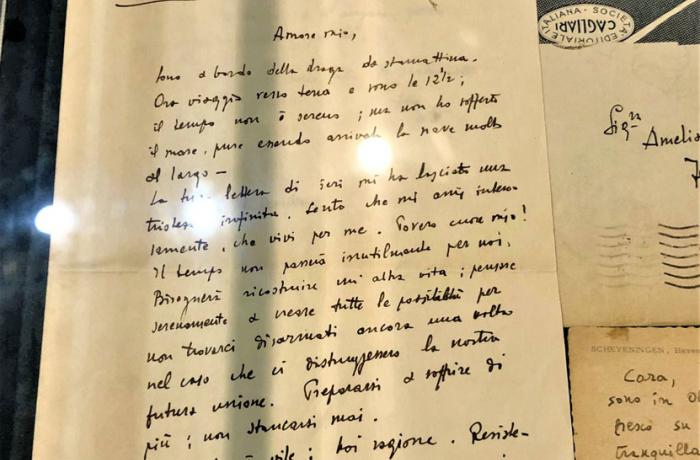 Amore mio,
sono a bordo della draga da stamattina.
Ora viaggio verso terra e sono le 12½;
il tempo non è sereno; ma non ho sofferto
il mare, pure essendo arrivata la nave molto
al largo —
La tua lettera di ieri mi ha lasciato una
tristezza infinita. Sento che mi ami intensa-
lamente, che vivi per me. Povero cuore mio!
Il tempo non passerà inutilmente per noi.
Bisognerà ricostruire un'altra vita; pensare
serenamente a creare tutte le possibilità per
non trovarci disarmati ancora una volta
nel caso che ci distruggessero la nostra
futura unione. Prepararsi a soffrire di
più; non stancarsi mai.
vile; hai ragione. Resiste-
ITALIANA - SOCIETÀ EDITORIALE
CAGLIARI
Sig.ra Amelia
SCHEVENINGEN,
Cara,
sono in
pesco su
tranquilla